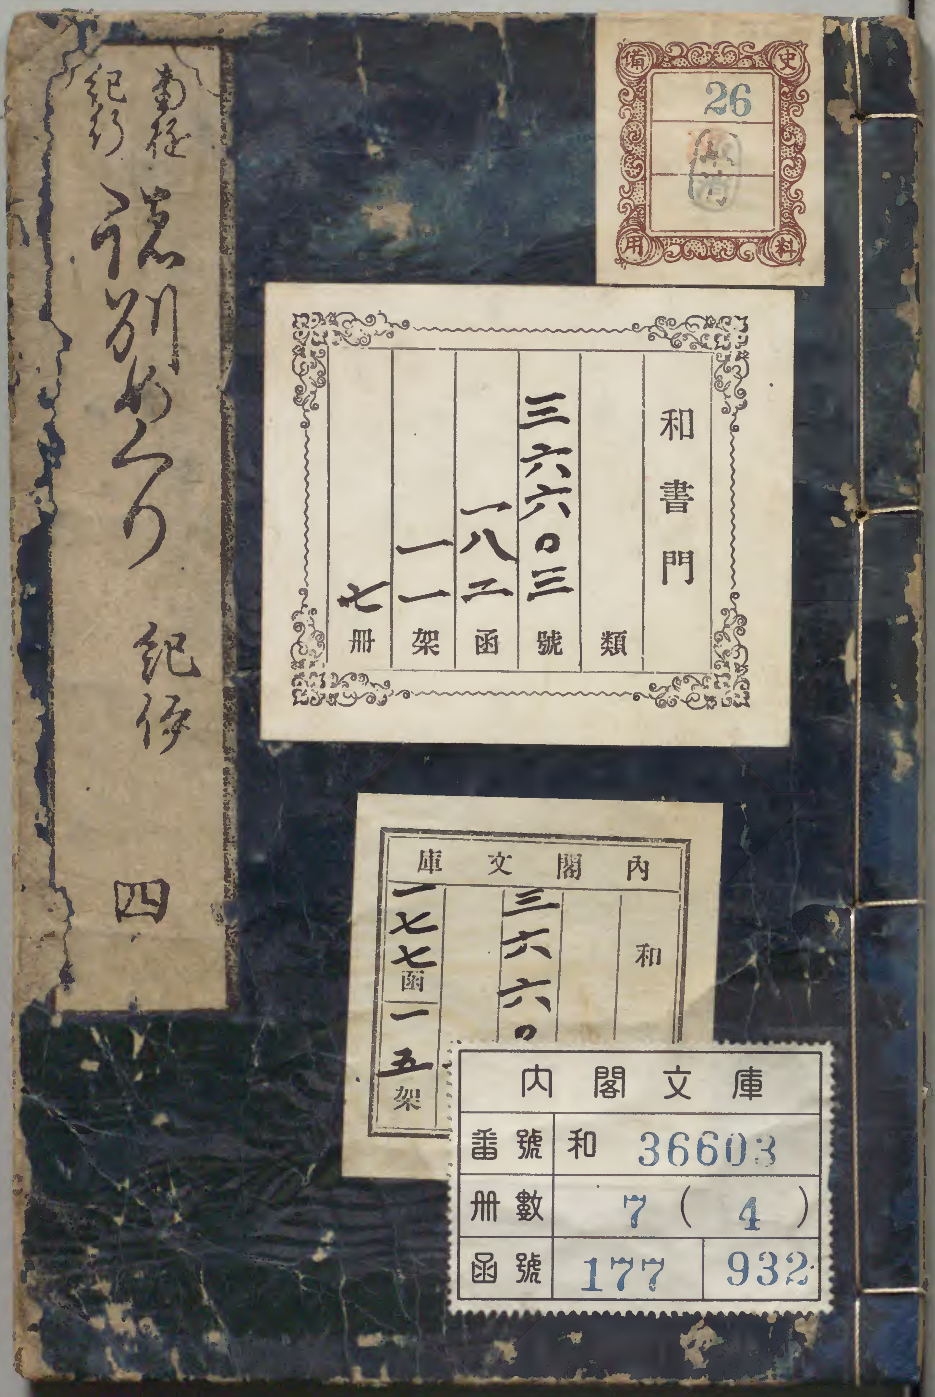 南遊
紀行
諸州めくり 紀伊 四
史料備用
26
和書門
類
三六六〇三號
一八二函
一一架
七册
內閣文庫
和
三六六〇
一七七函
一五架
內閣文庫
番號 和 36603
册數 7 ( 4 )
函號 177 932